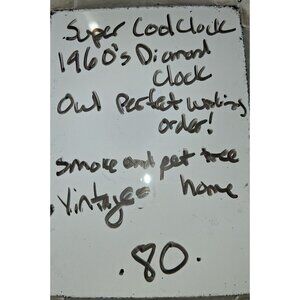 Super Cool Clock
1960's Diamond
Clock
Owl Perfect working
order!
smoke and pet free
Vintage home
.80.